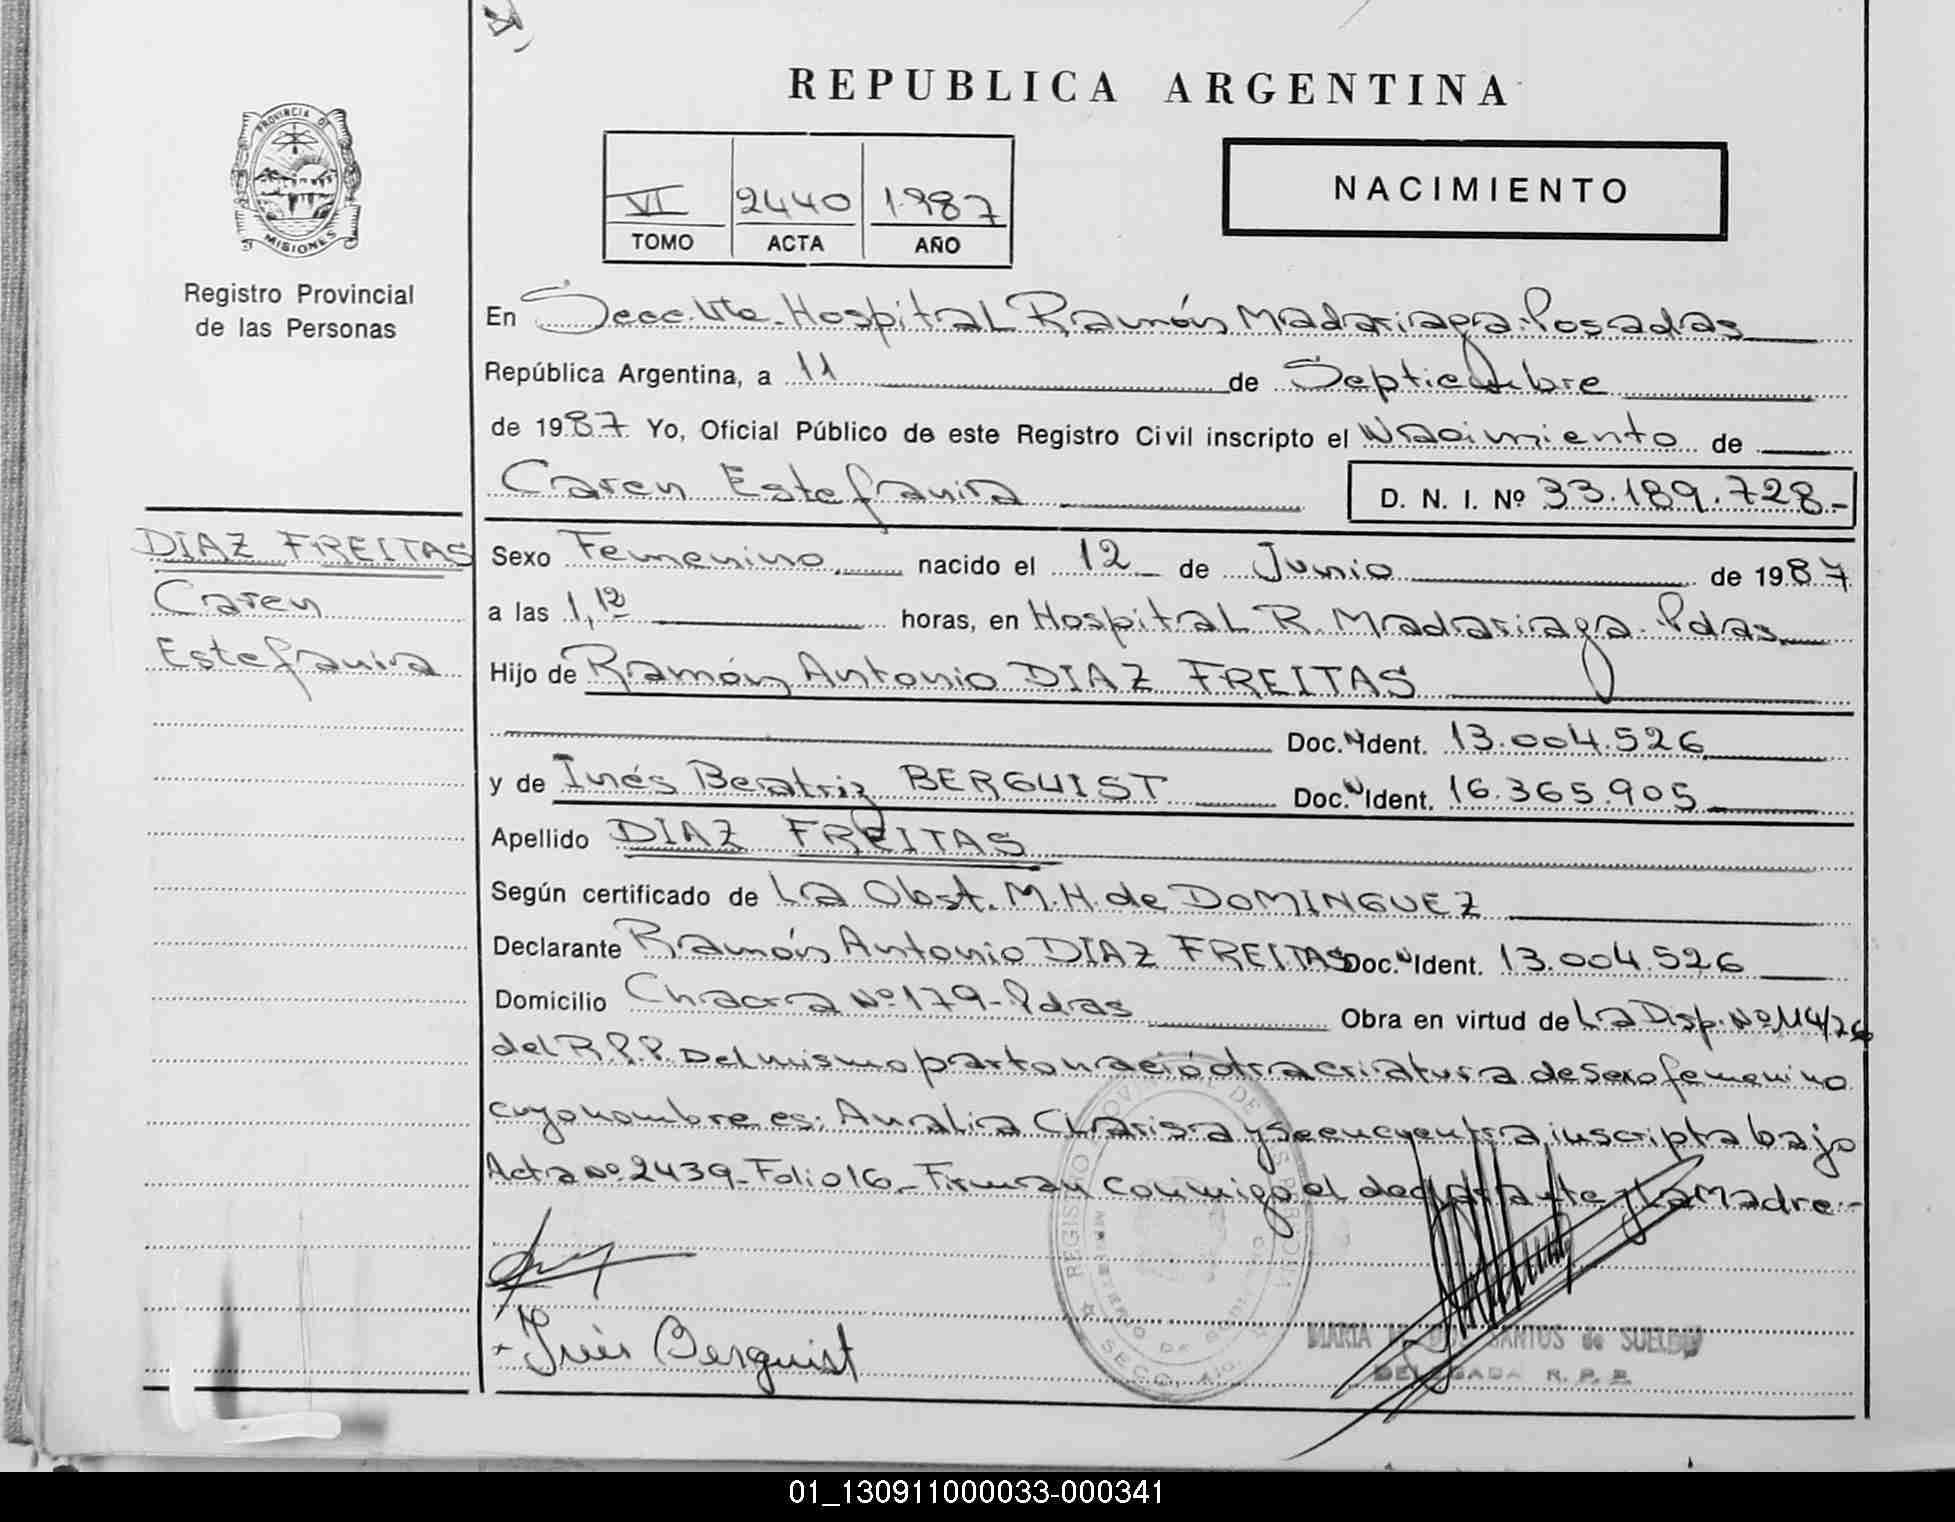 REPUBLICA ARGENTINA
PROVINCIA DE
MISIONES
Registro Provincial
de las Personas
VI 2440 1987
TOMO ACTA AÑO
NACIMIENTO
En Secc. Hospital Ramón Madariaga-Posadas
República Argentina, a 11 de Septiembre
de 1987 Yo, Oficial Público de este Registro Civil inscripto el Nacimiento de
Caren Estefania
D. N. I. Nº 33.189.728.-
DIAZ FREITAS
Caren
Estefania
Sexo Femenino nacido el 12 de Junio de 1987
a las 1,12 horas, en Hospital R. Madariaga-Pdas.
Hijo de Ramón Antonio DIAZ FREITAS
Doc. Ident. 13.004.526
y de Inés Beatriz BERGUIST Doc. Ident. 16.365.905
Apellido DIAZ FREITAS
Según certificado de La Obst. M.H. de DOMINGUEZ
Declarante Ramón Antonio DIAZ FREITAS Doc. Ident. 13.004.526
Domicilio Chacra Nº 179-Pdas Obra en virtud de La Disp. Nº 114/76
del R.P.P. Del mismo parto nació otra criatura de sexo femenino
cuyo nombre es: Analia Clarisa y se encuentra inscripta bajo
Acta Nº 2439-Folio 16.- Firman conmigo el declarante y la Madre.-
Inés Berguist
MARIA SANTOS de SUELDO
DELEGADA R. P. P.
01_130911000033-000341